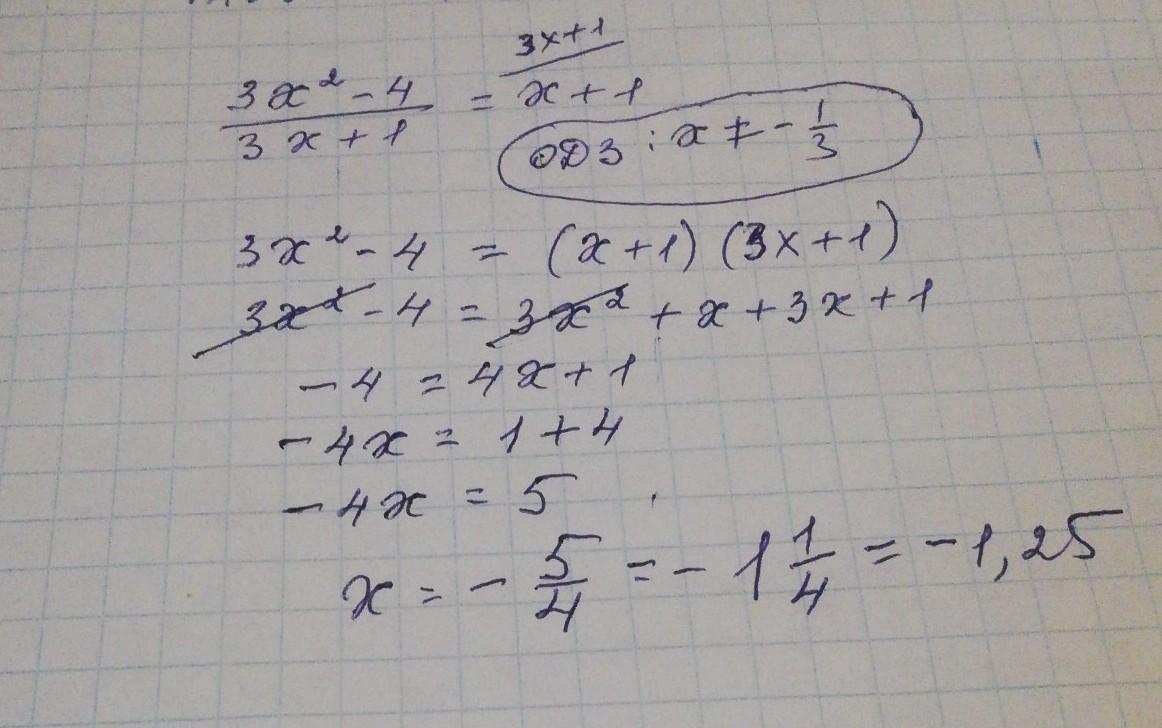 3x+1
(3x² - 4)/(3x + 1) = x + 1
ОДЗ : x ≠ - 1/3
3x² - 4 = (x + 1) (3x + 1)
3x² - 4 = 3x² + x + 3x + 1
- 4 = 4x + 1
- 4x = 1 + 4
- 4x = 5
x = - 5/4 = - 1 1/4 = - 1,25